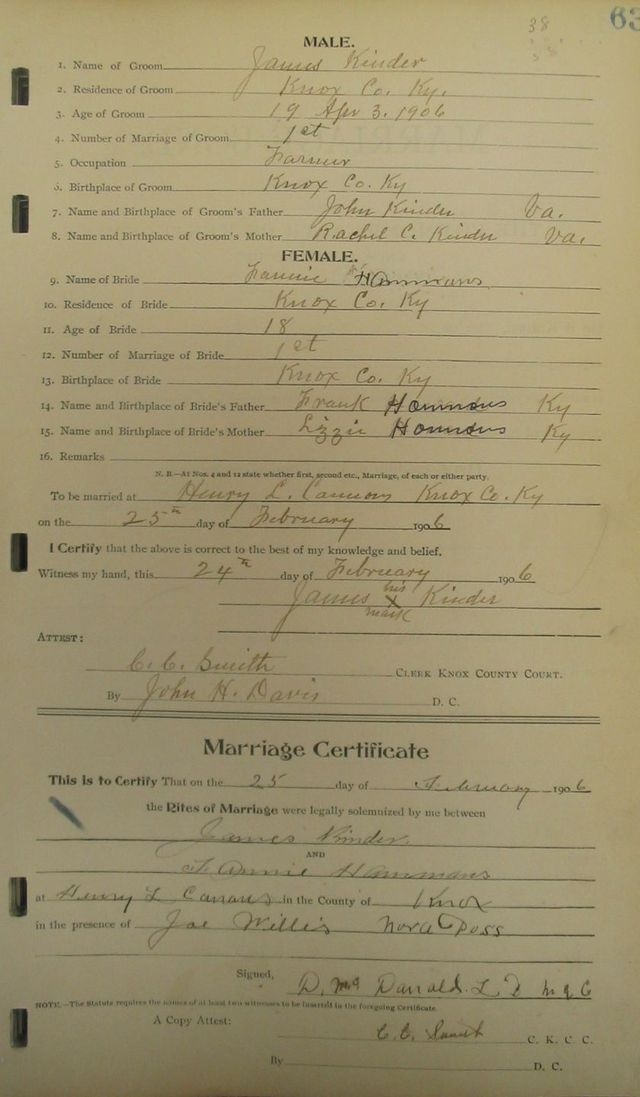 38
63
MALE.
1. Name of Groom James Kinder
2. Residence of Groom Knox Co. Ky.
3. Age of Groom 19 Apr 3. 1906
4. Number of Marriage of Groom 1st
5. Occupation Farmer
6. Birthplace of Groom Knox Co. Ky
7. Name and Birthplace of Groom's Father John Kinder Va.
8. Name and Birthplace of Groom's Mother Rachel C. Kinder Va.
FEMALE.
9. Name of Bride Fannie Hammans
10. Residence of Bride Knox Co. Ky
11. Age of Bride 18
12. Number of Marriage of Bride 1st
13. Birthplace of Bride Knox Co. Ky
14. Name and Birthplace of Bride's Father Frank Ky
15. Name and Birthplace of Bride's Mother Lizzie Ky
16. Remarks
N. B.—At Nos. 4 and 12 state whether first, second etc., Marriage, of each or either party.
To be married at Henry L. Knox Co. Ky
on the 25th day of February 1906
I Certify that the above is correct to the best of my knowledge and belief.
Witness my hand, this 24th day of February 1906
James his x mark Kinder
ATTEST:
C. C. Smith CLERK KNOX COUNTY COURT.
By John H. Davis D. C.
Marriage Certificate
This is to Certify That on the 25 day of February 1906
the Rites of Marriage were legally solemnized by me between
James Kinder
AND
Fannie Hammans
at Henry L in the County of Knox
in the presence of Joe Willis Nora Doss
Signed, D. Mc
NOTE.—The Statute requires the names of at least two witnesses to be inserted in the foregoing Certificate.
A Copy Attest:
C. C. Smith C. K. C. C.
By D. C.